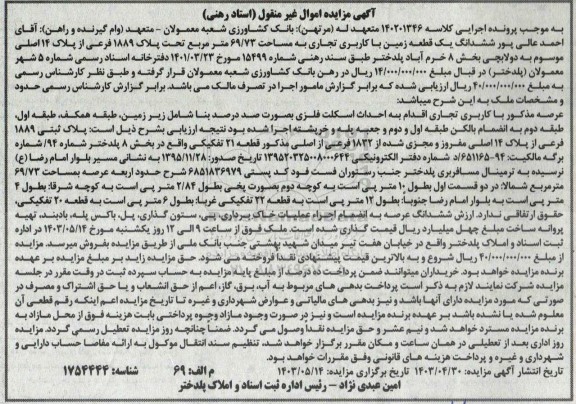 آگهی مزایده اموال غیر منقول (اسناد رهنی)
به موجب پرونده اجرایی کلاسه ۱۴۰۲۰۱۳۴۶ متعهد له (مرتهن): بانک کشاورزی شعبه معمولان - متعهد (وام گیرنده و راهن): آقای
احمد عالی پور ششدانگ یک قطعه زمین با کاربری تجاری به مساحت ۶۹/۷۳ متر مربع تحت پلاک ۱۸۸۹ فرعی از پلاک ۱۴ اصلی
موسوم به دولابچی بخش ۸ خرم آباد پلدختر طبق سند رهنی شماره ۱۵۴۹۹ مورخ ۱۴۰۱/۰۳/۲۳ دفترخانه اسناد رسمی شماره ۵ شهر
معمولان (پلدختر) در قبال مبلغ ۱۴/۰۰۰/۰۰۰/۰۰۰ ریال در رهن بانک کشاورزی شعبه معمولان قرار گرفته و طبق نظر کارشناس رسمی
به مبلغ ۴۰/۰۰۰/۰۰۰/۰۰۰ ریال ارزیابی شده که برابر گزارش مامور اجرا در تصرف مالک می باشد. برابر گزارش کارشناس رسمی حدود
و مشخصات ملک به این شرح میباشد:
عرصه مذکور با کاربری تجاری اقدام به احداث اسکلت فلزی بصورت صد درصد بنا شامل زیر زمین، طبقه همکف، طبقه اول،
طبقه دوم به انضمام بالکن طبقه اول و دوم و جعبه پله و خرپشته اجرا شده بود نتیجه ارزیابی بشرح ذیل است: پلاک ثبتی ۱۸۸۹
فرعی از پلاک ۱۴ اصلی مفروز و مجزی شده از ۱۸۳۲ فرعی از اصلی مذکور قطعه ۲۱ تفکیکی واقع در بخش ۸ پلدختر شماره ۹۴/شماره
برگه مالکیت: ۶۵۱۱۶۵-۹۴/د شماره دفتر الکترونیکی ۱۳۹۵۲۰۳۲۵۰۰۸۰۰۰۶۴۴ تاریخ صدور: ۱۳۹۵/۱۱/۲۸ به نشانی مسیر بلوار امام رضا (ع)
نرسیده به ترمینال مسافربری پلدختر جنب رستوران فست فود کد پستی ۶۸۵۱۸۳۶۹۷۹ شرح حدود اربعه عرصه بمساحت ۶۹/۷۳
مترمربع شمالا: در دو قسمت اول بطول ۱۰ متر پی است به کوچه دوم بصورت پخی بطول ۲/۸۴ متر پی است به کوچه شرقا: بطول ۴
متر پی است به بلوار امام رضا جنوبا: بطول ۱۲ متر پی است به قطعه ۲۲ تفکیکی غربا: بطول ۶ متر پی است به قطعه ۲۰ تفکیکی،
حقوق ارتفاقی ندارد. ارزش ششدانگ عرصه به انضمام اجراء عملیات خاک برداری پی، ستون گذاری، پل، باکس پله، بادبند، تهیه
پروانه ساخت مبلغ چهل میلیارد ریال قیمت گذاری شده است. ملک فوق از ساعت ۹ الی ۱۲ روز یکشنبه مورخ ۱۴۰۳/۰۵/۱۴ در اداره
ثبت اسناد و املاک پلدختر واقع در خیابان هفت تیر میدان شهید بهشتی جنب بانک ملی از طریق مزایده بفروش میرسد. مزایده
از مبلغ ۴۰/۰۰۰/۰۰۰/۰۰۰ ریال شروع و به بالاترین قیمت پیشنهادی نقدا فروخته می شود. حق مزایده زاید بر مبلغ مزایده بر عهده
برنده مزایده خواهد بود. خریداران میتوانند ضمن پرداخت ده درصد از مبلغ پایه مزایده به حساب سپرده ثبت در وقت مقرر در جلسه
مزایده شرکت نمایند لازم به ذکر است پرداخت بدهی های مربوط به آب، برق، گاز، اعم از حق انشعاب و یا حق اشتراک و مصرف در
صورتی که مورد مزایده دارای آنها باشد و نیز بدهی های مالیاتی و عوارض شهرداری و غیره تا تاریخ مزایده اعم اینکه رقم قطعی آن
معلوم شده یا نشده باشد بر عهده برنده مزایده است و نیز در صورت وجود مازاد وجوه پرداختی بابت هزینه فوق از محل مازاد به
برنده مزایده مسترد خواهد شد و نیم عشر و حق مزایده نقدا وصول می گردد. ضمنا چنانچه روز مزایده تعطیل رسمی گردد. مزایده
روز اداری بعد از تعطیلی در همان ساعت و مکان مقرر برگزار خواهد شد، تنظیم سند انتقال موکول به ارائه مفاصا حساب دارایی و
شهرداری و غیره و پرداخت هزینه های قانونی وفق مقررات خواهد بود.
تاریخ انتشار آگهی مزایده: ۱۴۰۳/۰۴/۳۰ تاریخ برگزاری مزایده: ۱۴۰۳/۰۵/۱۴ م الف: ۶۹ شناسه: ۱۷۵۴۴۴۴
امین عبدی نژاد - رئیس اداره ثبت اسناد و املاک پلدختر